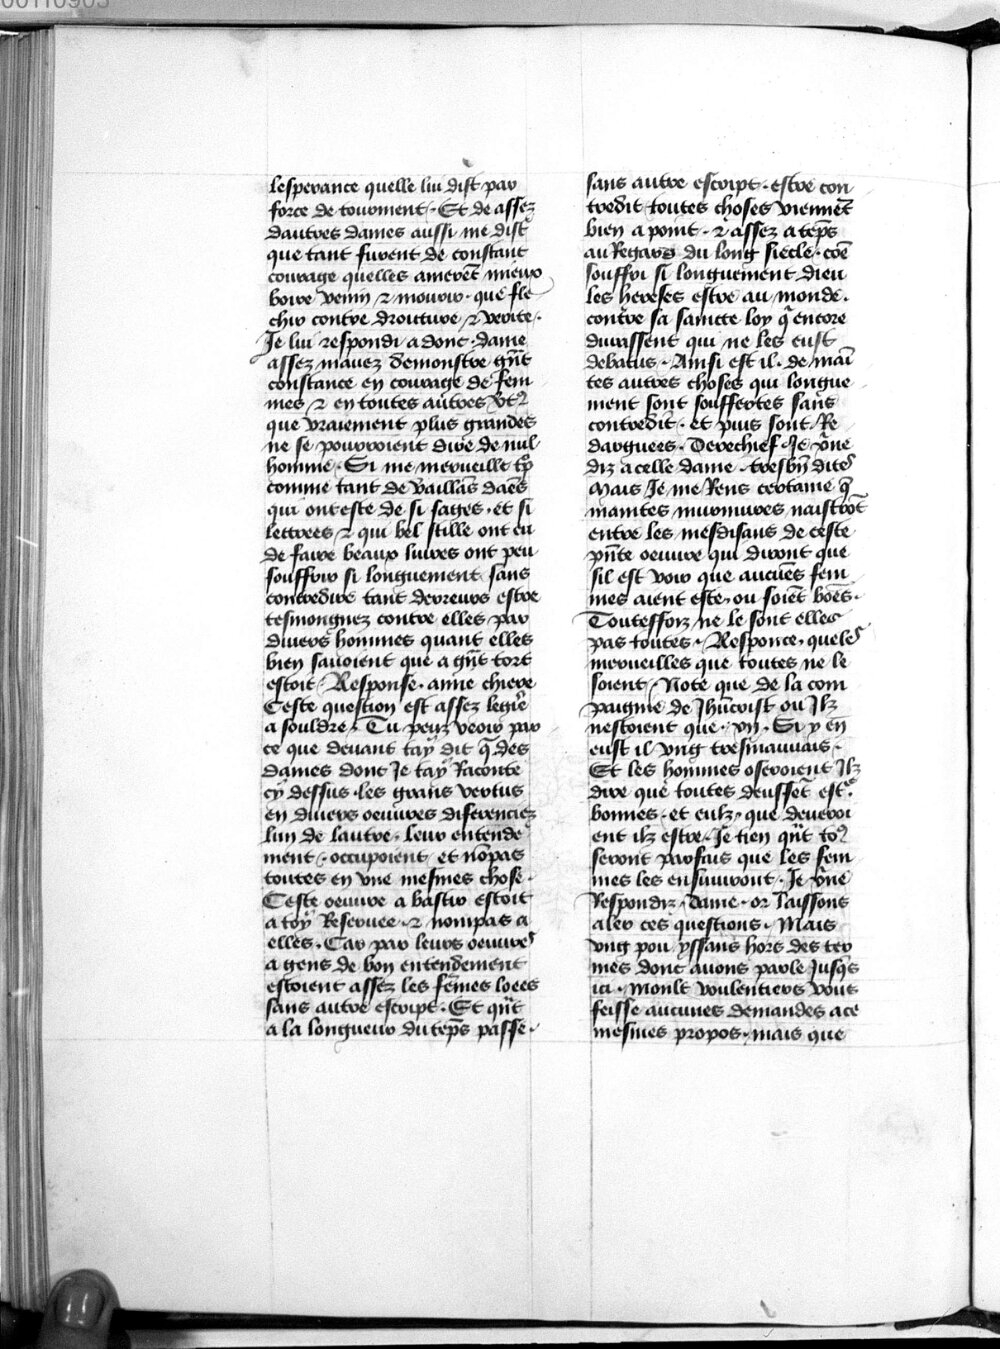 lesperance quelle lui dist par
force de tourment · Et de assez
dautres dames aussi me dist
que tant furent de constant
courage quelles amerēt mieux
boire venin ⁊ mourir · que fle
chir contre droiture ⁊ verite ·
Je lui respondi adonc · dame
assez mauez demonstre gr̄nt
constance en courage de fem
mes ⁊ en toutes autres
que vraiement plus grandes
ne se pourroient dire de nul
homme · Si me merueille
comme tant de vaillās daēs
qui ont este de si sages · et si
lettrees ⁊ qui bel stille ont eu
de faire beaux liures ont peu
souffrir si longuement sans
contredire tant derreurs estre
tesmongnez contre elles par
diuers hommes quant elles
bien sauoient que a gr̄nt tort
estoit · Response · amie chiere
Ceste question est assez legiēre
a souldre · Tu peuz veoir par
ce que deuant tay dit q̄ des
dames dont Je tay Raconte
cy dessus · les grans vertus
en diuers oeuures diferenciez
lun de lautre · leur entende
ment · occupoient et nōpas
toutes en vne mesmes chose ·
Ceste oeuure a bastir estoit
a toy Reseruee · ⁊ nompas a
elles · Car par leurs oeuures
a gens de bon entendement
estoient assez les fēmes loees
sans autre escript · Et qn̄t
a la longueur du tēps passe ·
sans autre escript · estre con
tredit toutes choses viennēt
bien a point · ⁊ assez a tēps
au Regard du long siecle · cōe
souffri si longuement dieu
les hereses estre au monde ·
contre sa saincte loy q̄ encore
durassent qui ne les eust
debatus · Ainsi est il · de māi
tes autres choses qui longue
ment sont souffertes sans
contredit · et puis sont Re
darguees · Derechief · Je
diz a celle dame · tresbn̄ dites
Mais Je me Rens certaine q̄
maintes murmures naistrōt
entre les mesdisans de ceste
pn̄te oeuure qui diront que
sil est voir que aucuēs fem
mes aient este · ou soiēt bōes ·
Toutesfoiz ne le sont elles
pas toutes · Responce · queles
merueilles que toutes ne le
soient · Note que de la com
paignie de Jhūcrist ou Ilz
nestoient que · xij · Si y en
eust il vng tresmauuais ·
Et les hommes oseroient Ilz
dire que toutes deussēt estr̄
bonnes · et eulz · que deueroi
ent ilz estre · Je tien qn̄t to9
seront parfais que les fem
mes les ensuiuront · Je
Respondiz · dame · or laissons
aler ces questions · Mais
vng pou yssans hors des ter
mes dont auons parle Jusq̄s
ici · Moult voulentiers vous
feisse aucunes demandes a ce
mesmes propos · mais que